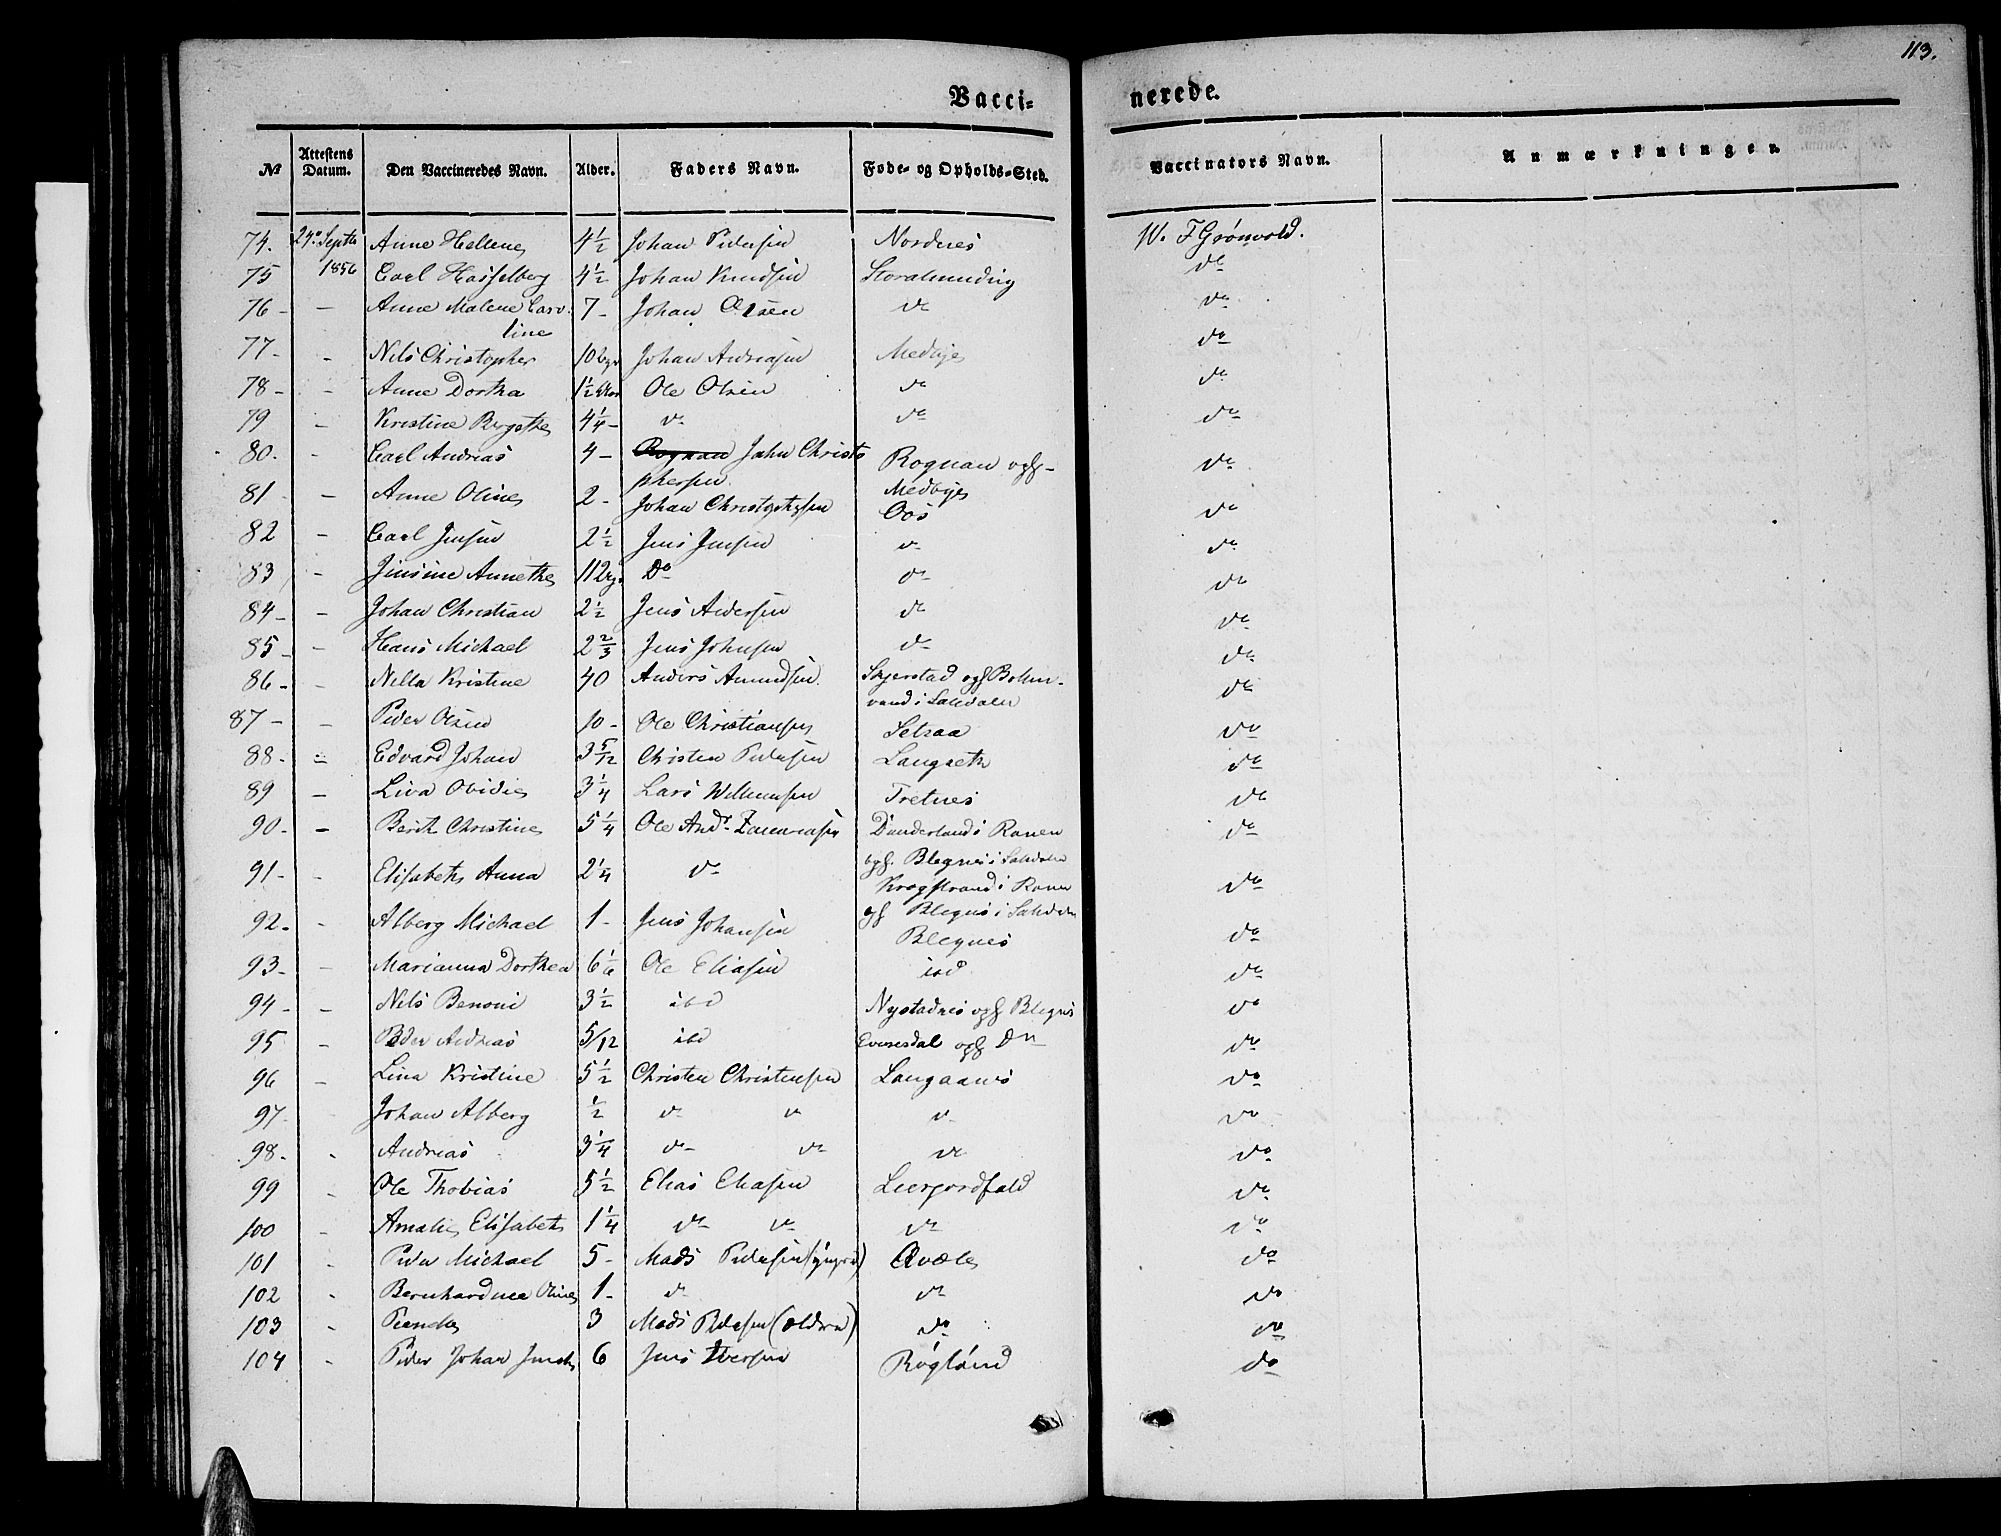 113.
Vacci- nerede.
No Attestens Datum. Den Vaccineredes Navn. Alder. Faders Navn. Føde- og Opholds-Sted. Vaccinators Navn. Anmærkninger.
74. 24de Septb Anne Hellene 4 1/2 Johan Pedersen Nordnes W. F Grönvold.
75 1856 Carl Hasselberg 4 1/2 Johan Knudsen Storalmending do
76 - - Anne Malene Caro- 7 - Johan Olsen do do
line
77 - - Nils Christopher 10 Johan Andreasen Medbye do
78 - - Anne Dorthea 1 1/2 Ole Olsen do do
79 - Kristine Bergethe 4 1/4 - do do do
80. - Carl Andreas 4 - Rognan John Christo Rognan opf - do
phersen Medbye
81 - Anne Oline 2 - Johan Christophersen Oos do
82 - Carl Jensen 2 1/2 Jens Jensen do do
83 - Jensine Annethe 11 Do do do
84 - - Johan Christian 2 1/2 Jens Andersen do do
85 - - Hans Michael 2 2/3 Jens Johnsen do do
86 - - Nella Kristine 40 Anders Amundsen Skjerstad opf do
vand i Saltdalen
87 - - Peder Olsen 10 - Ole Christiansen Setsaa do
88 - - Edvard Johan 3 5/12 Christen Pedersen Langseth do
89 - Lina Ovidie 3 1/4 Lars Willumsen Tretnes do
90 - - Berith Christine 5 1/4 Ole Andr. Zacariasen Dunderland i Ranen do
opf. Blegnes i Saltdalen
91 - - Elisabeth Anna 2 1/4 do Krogstrand i Ranen do
92. - Alberg Michael 1 - Jens Johansen opf Blegnes i Saltdalen do
Blegnes
93 - - Marianna Dorthea 6 1/6 Ole Eliasen ibd do
94 - - Nils Benoni 3 1/2 ibd Nystadnes opf Blegnes do
95 - Peder Andreas 5/12 ibd Evenesdal opf Do do
96 - Lina Kristine 5 1/2 Christen Christensen Langaanes do
97 - Johan Alberg 1/2 do do do do
98 - - Andreas 3 1/4 do do do do
99 - Ole Thobias 5 1/2 Elias Eliasen Leerjordfald do
100 - Amalie Elisabeth 1 1/4 do do do do
101 - Peder Michael 5 - Mads Pedersen (yngre) Qvæle do
102 - Bernhardine Oline 1 - do do do
103 - 3 Mads Pedersen (ældre) do do
104 - Peder Johan 6 Jens Iversen Røgland do